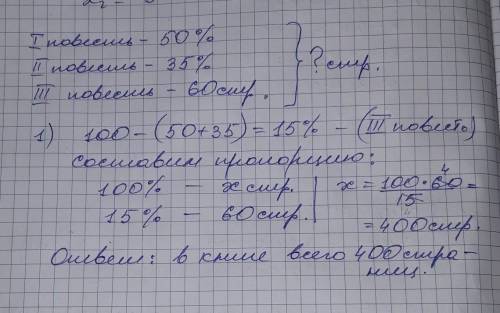 I повесть - 50%
II повесть - 35%
III повесть - 60 стр.
? стр.
1) 100 - (50+35) = 15% - (III повесть)
составим пропорцию:
100% - x стр.
15% - 60 стр.
x = 100·60/15 =
4
= 400 стр.
Ответ: в книге всего 400 страниц.